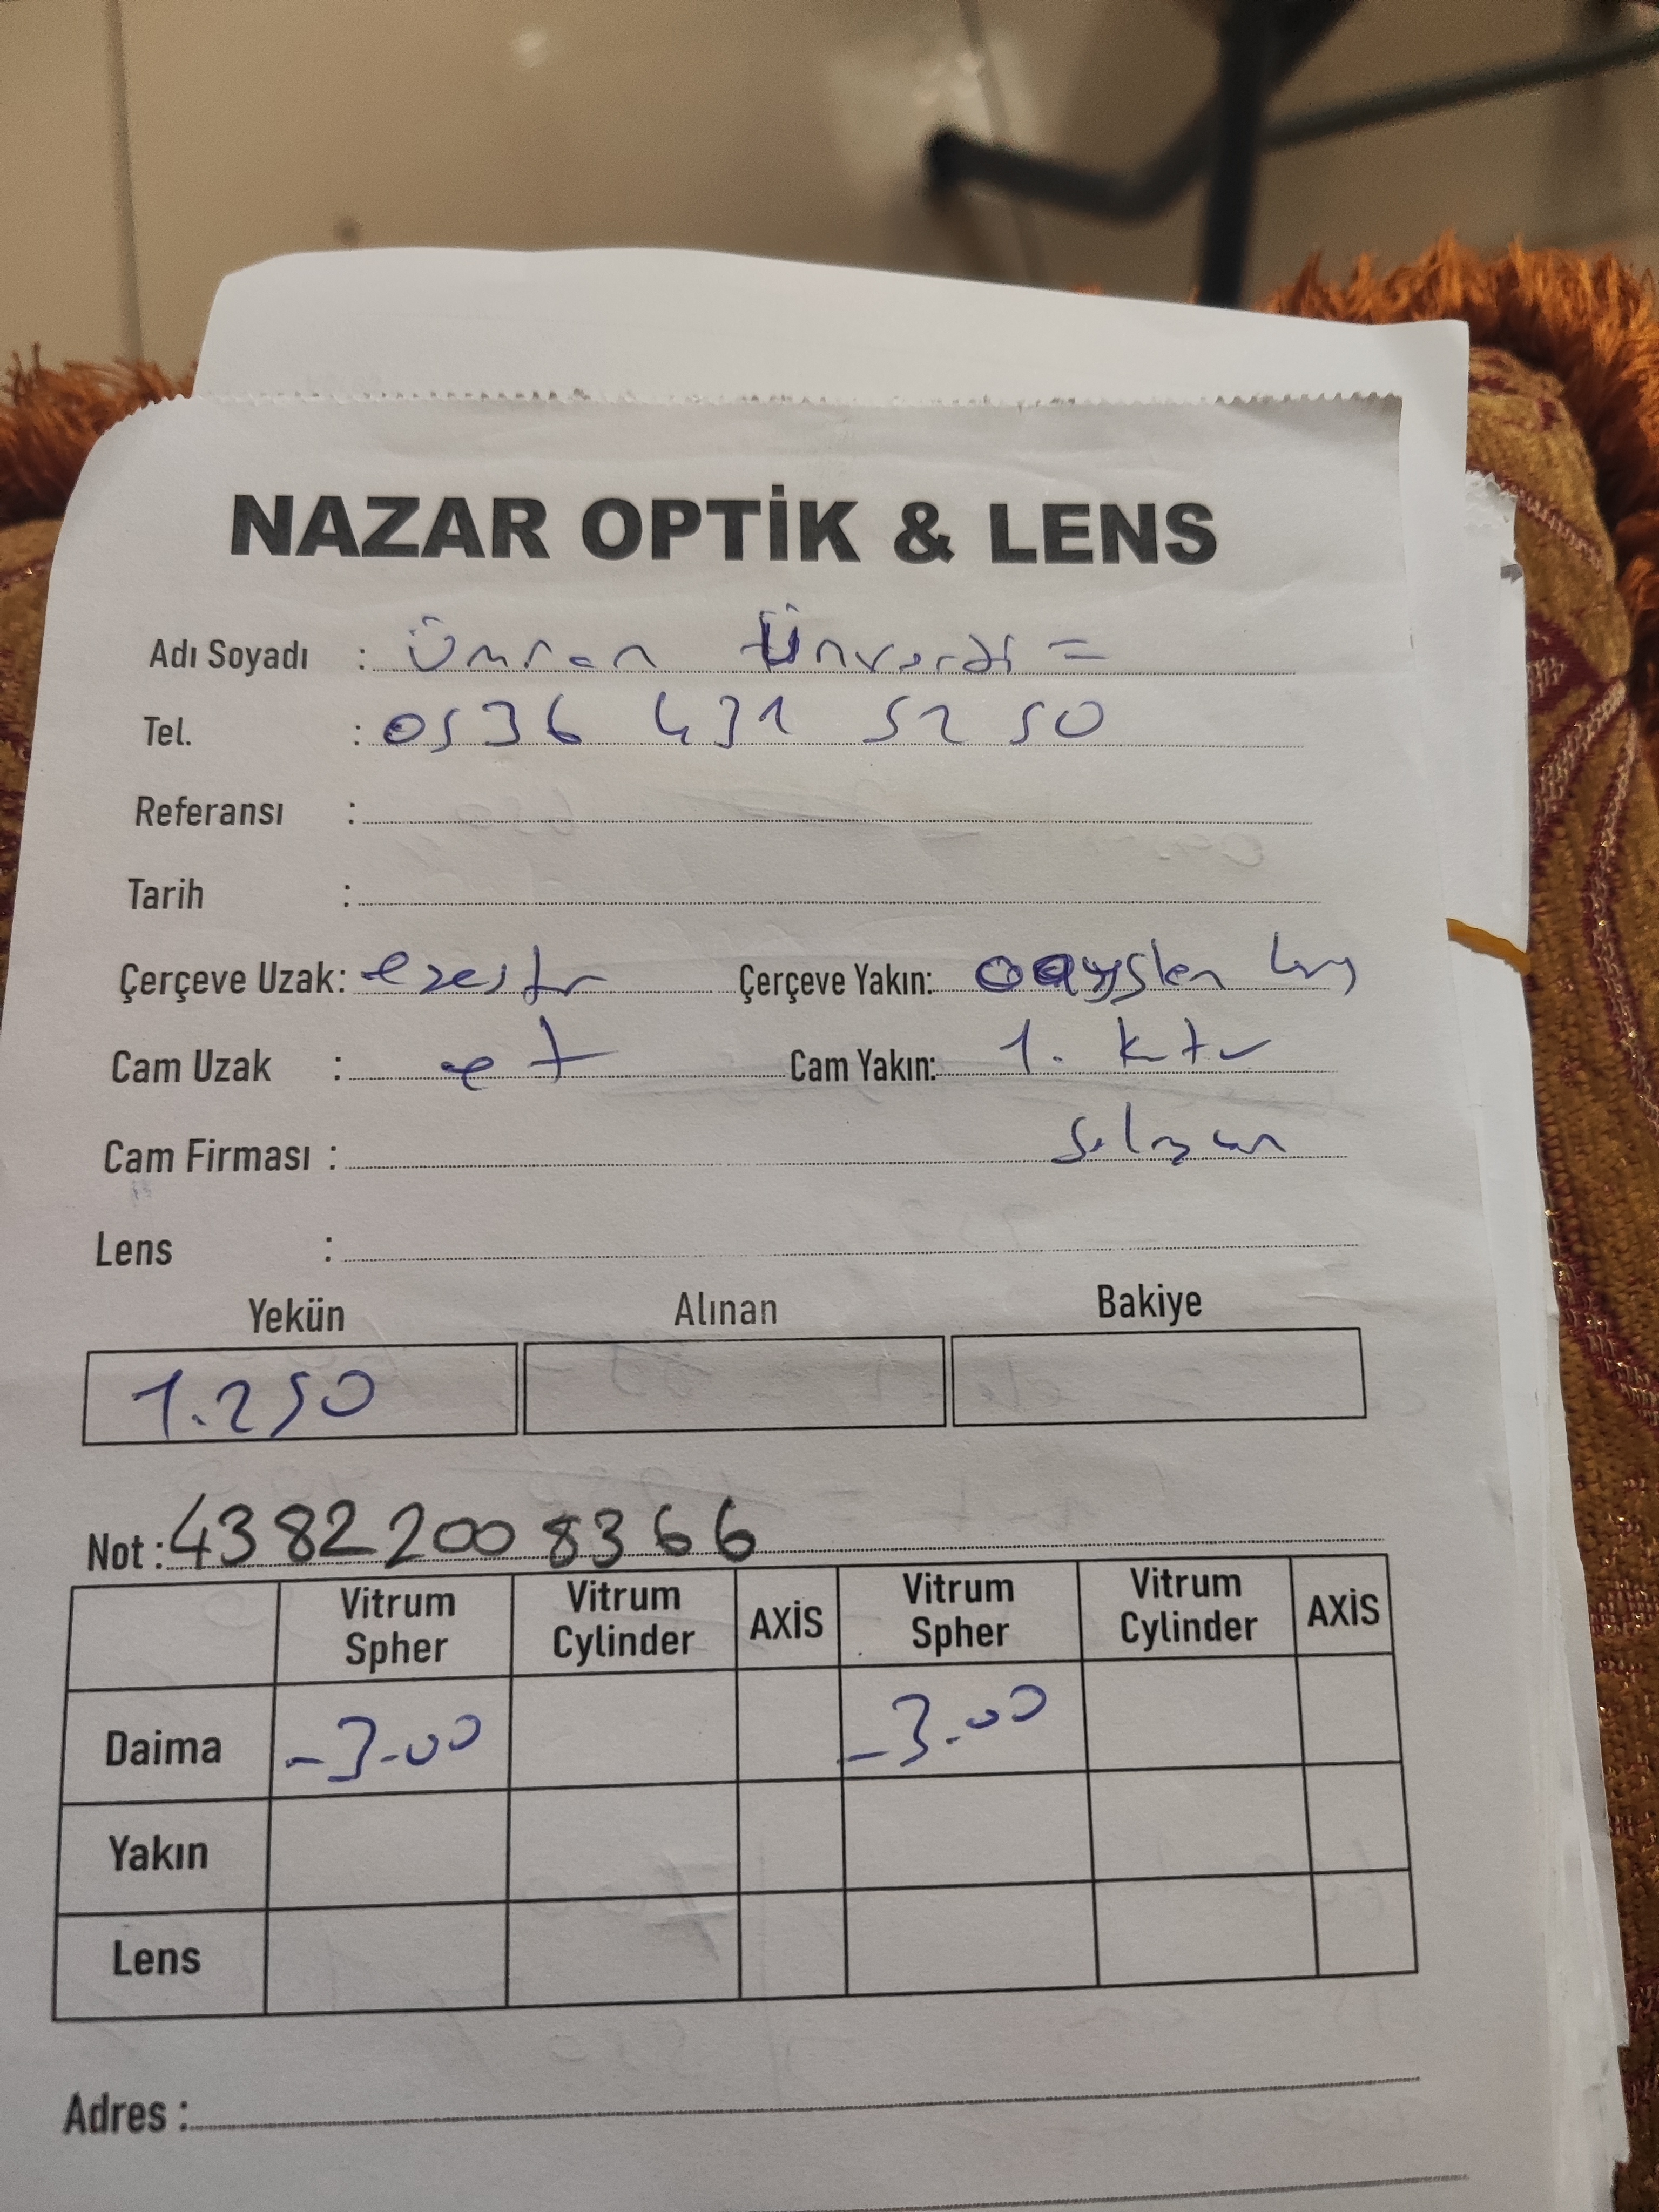 NAZAR OPTİK & LENS
Adı Soyadı : Ümran Ünverdi =
Tel. : 0536 431 52 50
Referansı :
Tarih :
Çerçeve Uzak: Çerçeve Yakın:
Cam Uzak : Cam Yakın: 1.
Cam Firması :
Lens :
Yekün Alınan Bakiye
1.250
Not: 43822008366
Vitrum Spher Vitrum Cylinder AXİS Vitrum Spher Vitrum Cylinder AXİS
Daima -3.00 -3.00
Yakın
Lens
Adres :